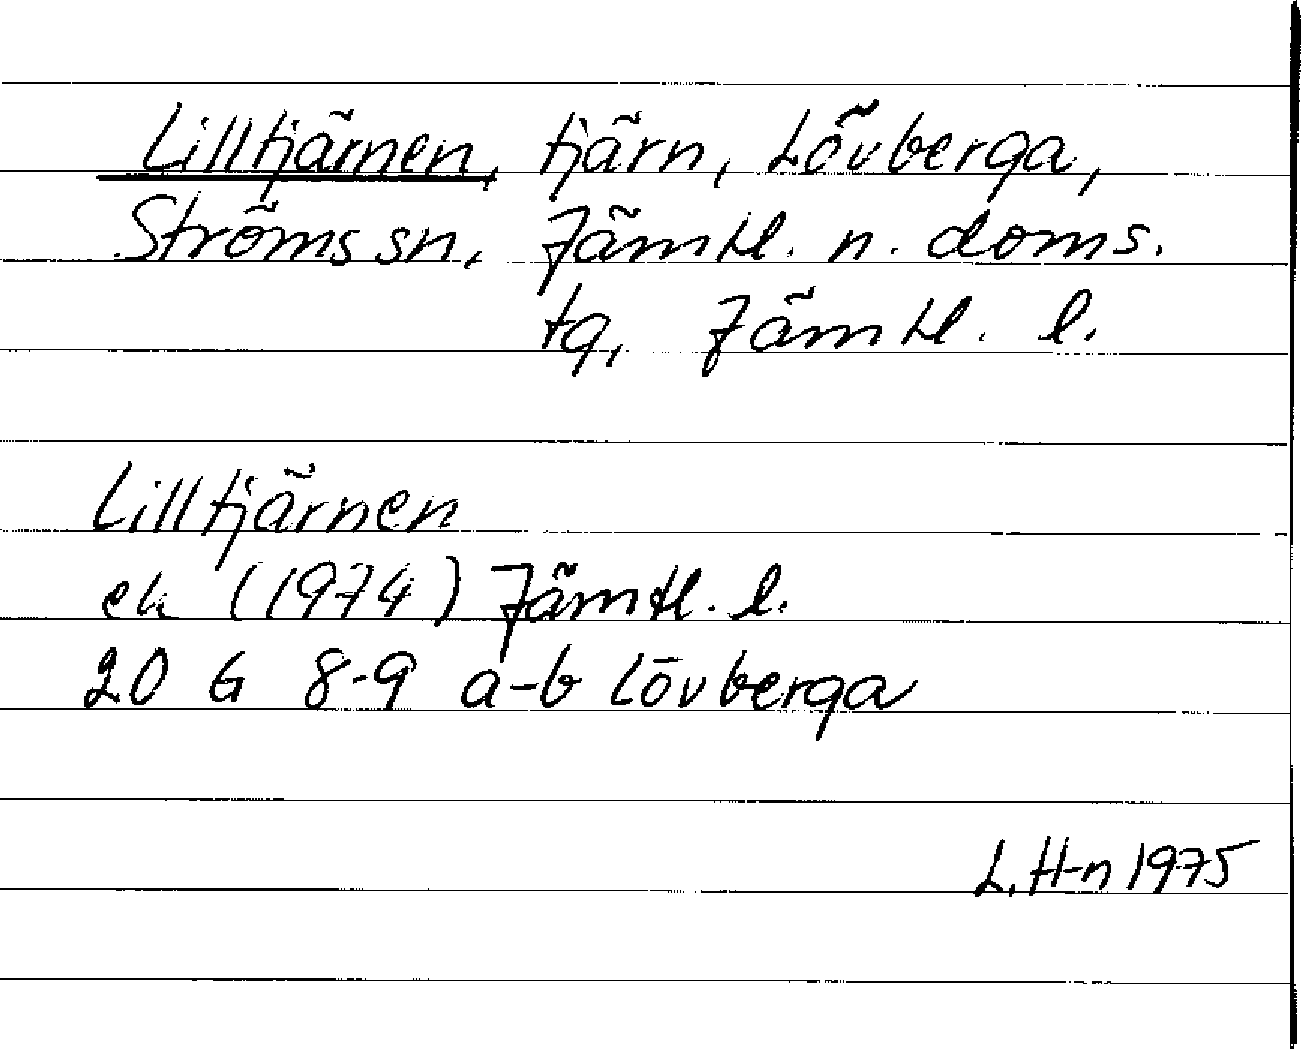 Lilltjärnen, tjärn, Lövberga,
Ströms sn, Jämtl. n. doms.
tg, Jämtl. l.
Lilltjärnen
ek (1974) Jämtl. l.
20 G 8-9 a-b Lövberga
L. H-n 1975